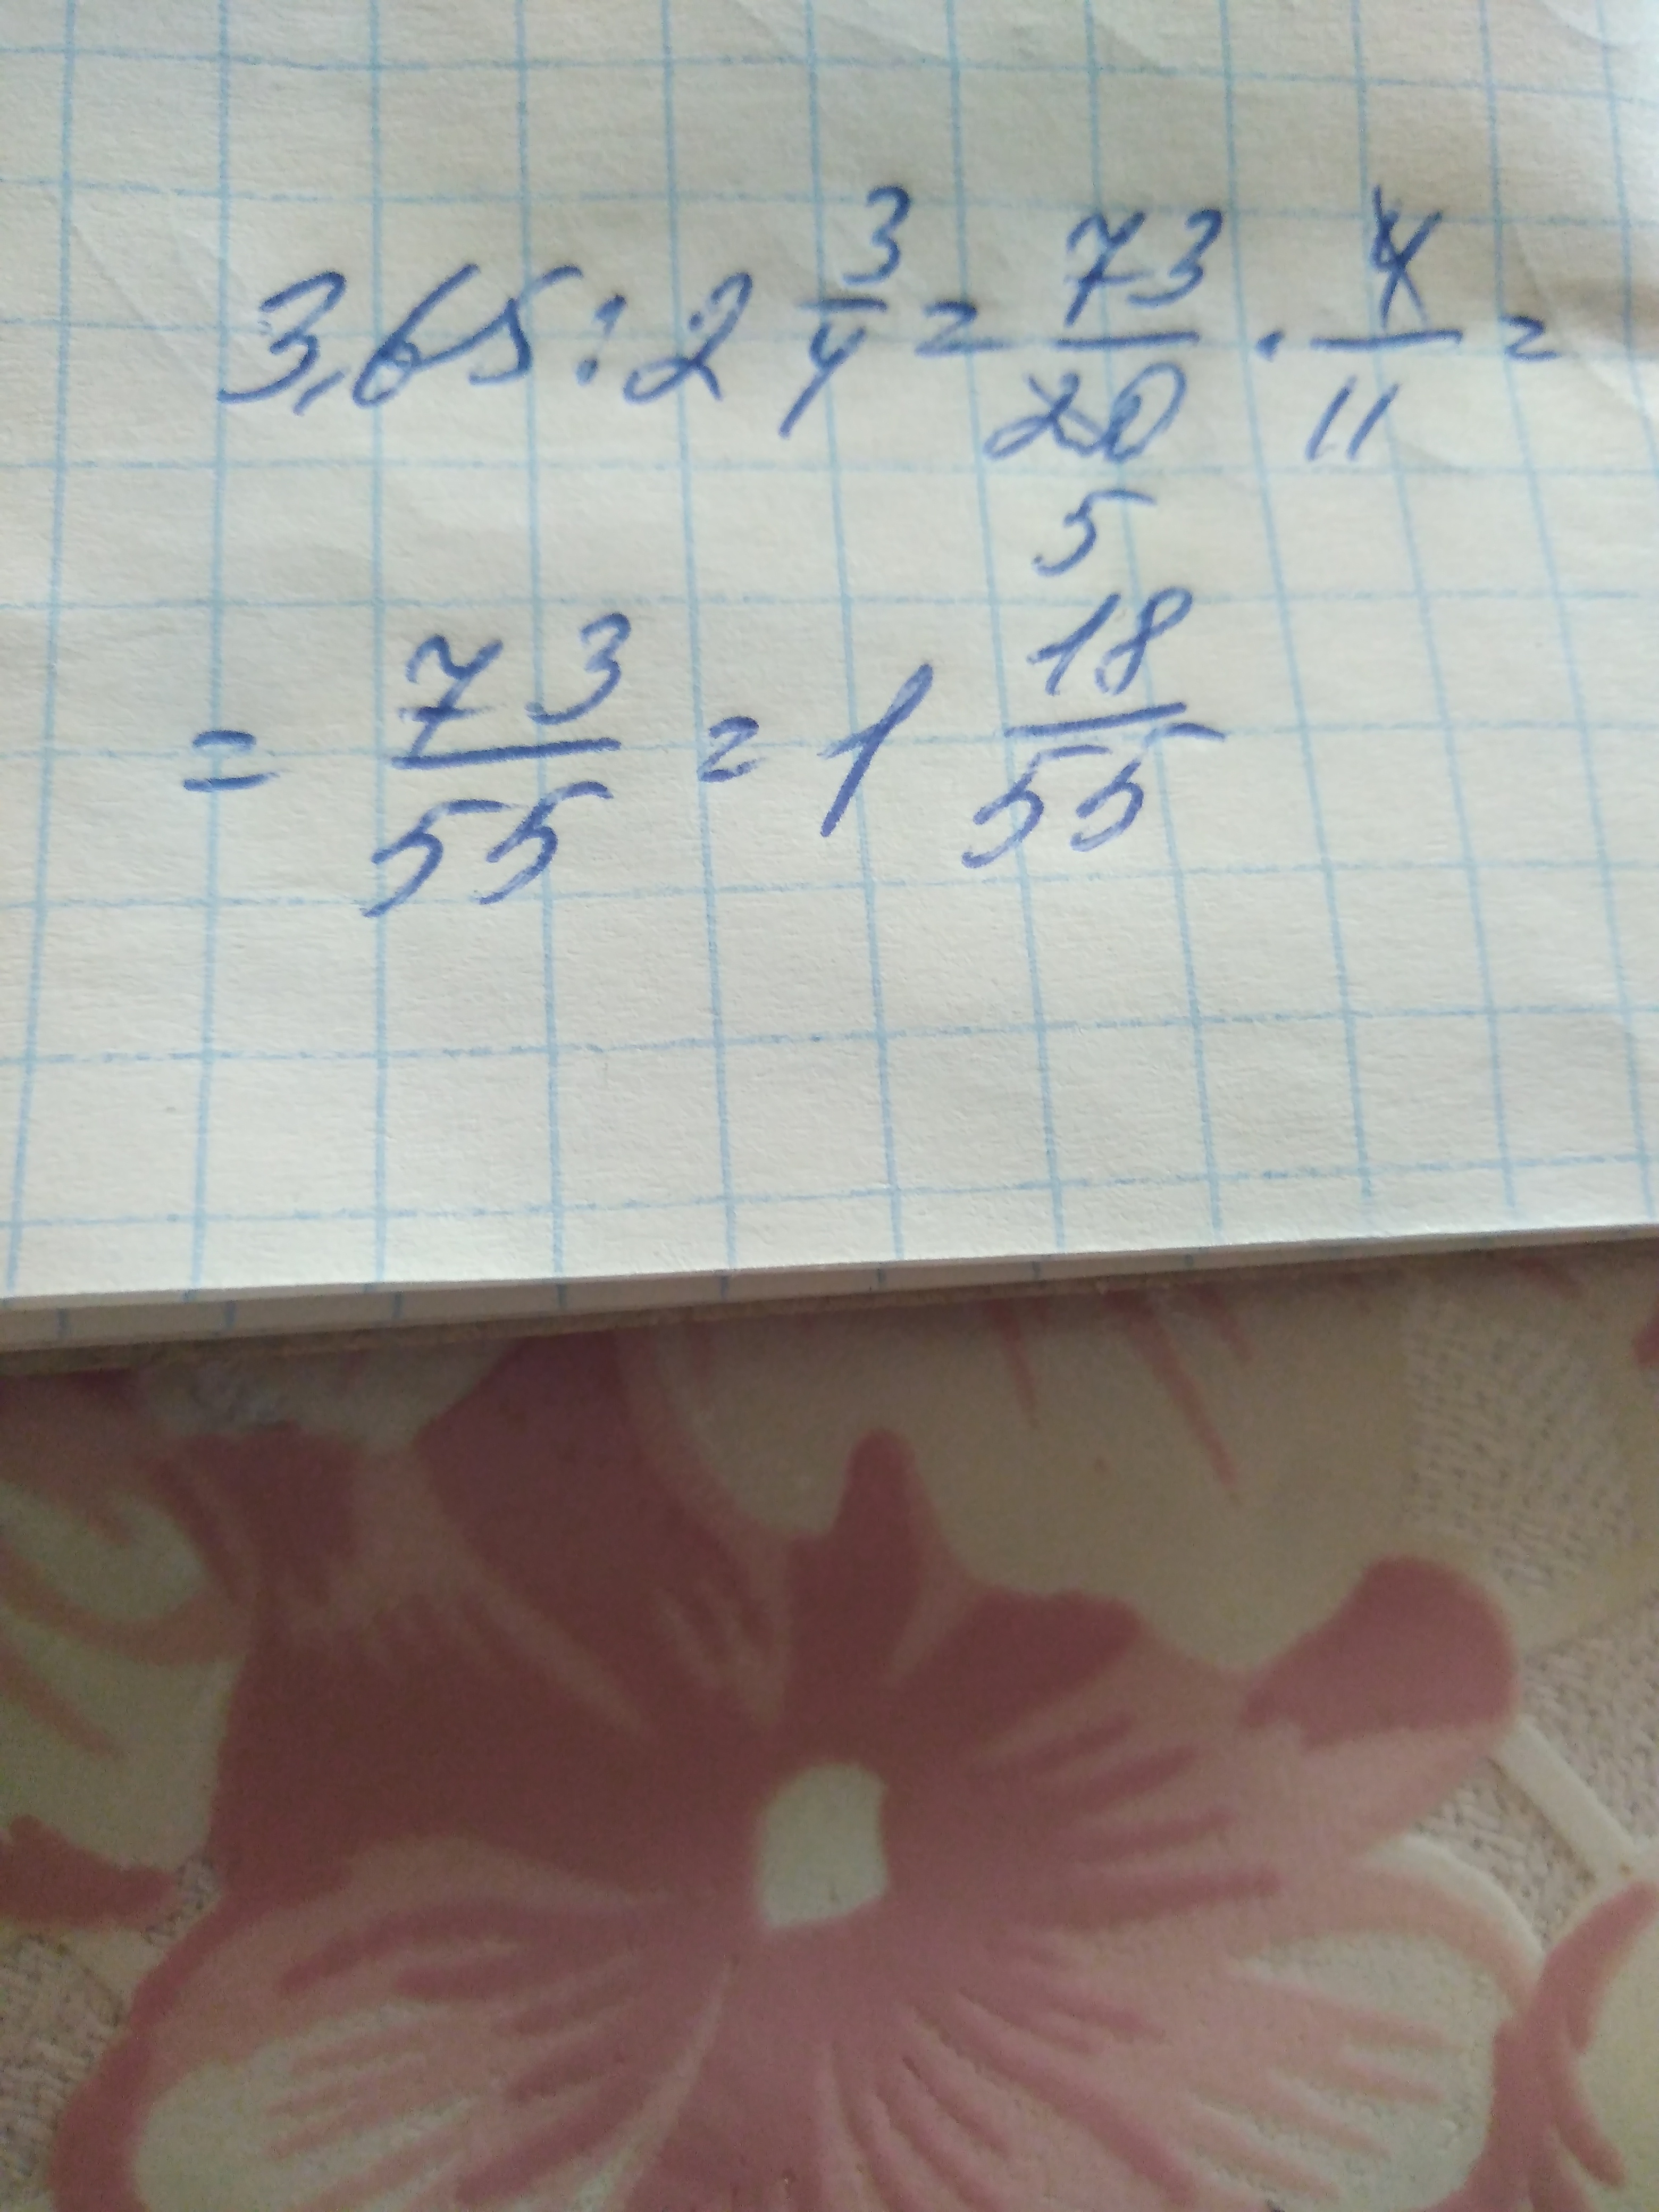 3,65 : 2 3/4 = 73/20 · 4/11 =
5
= 73/55 = 1 18/55